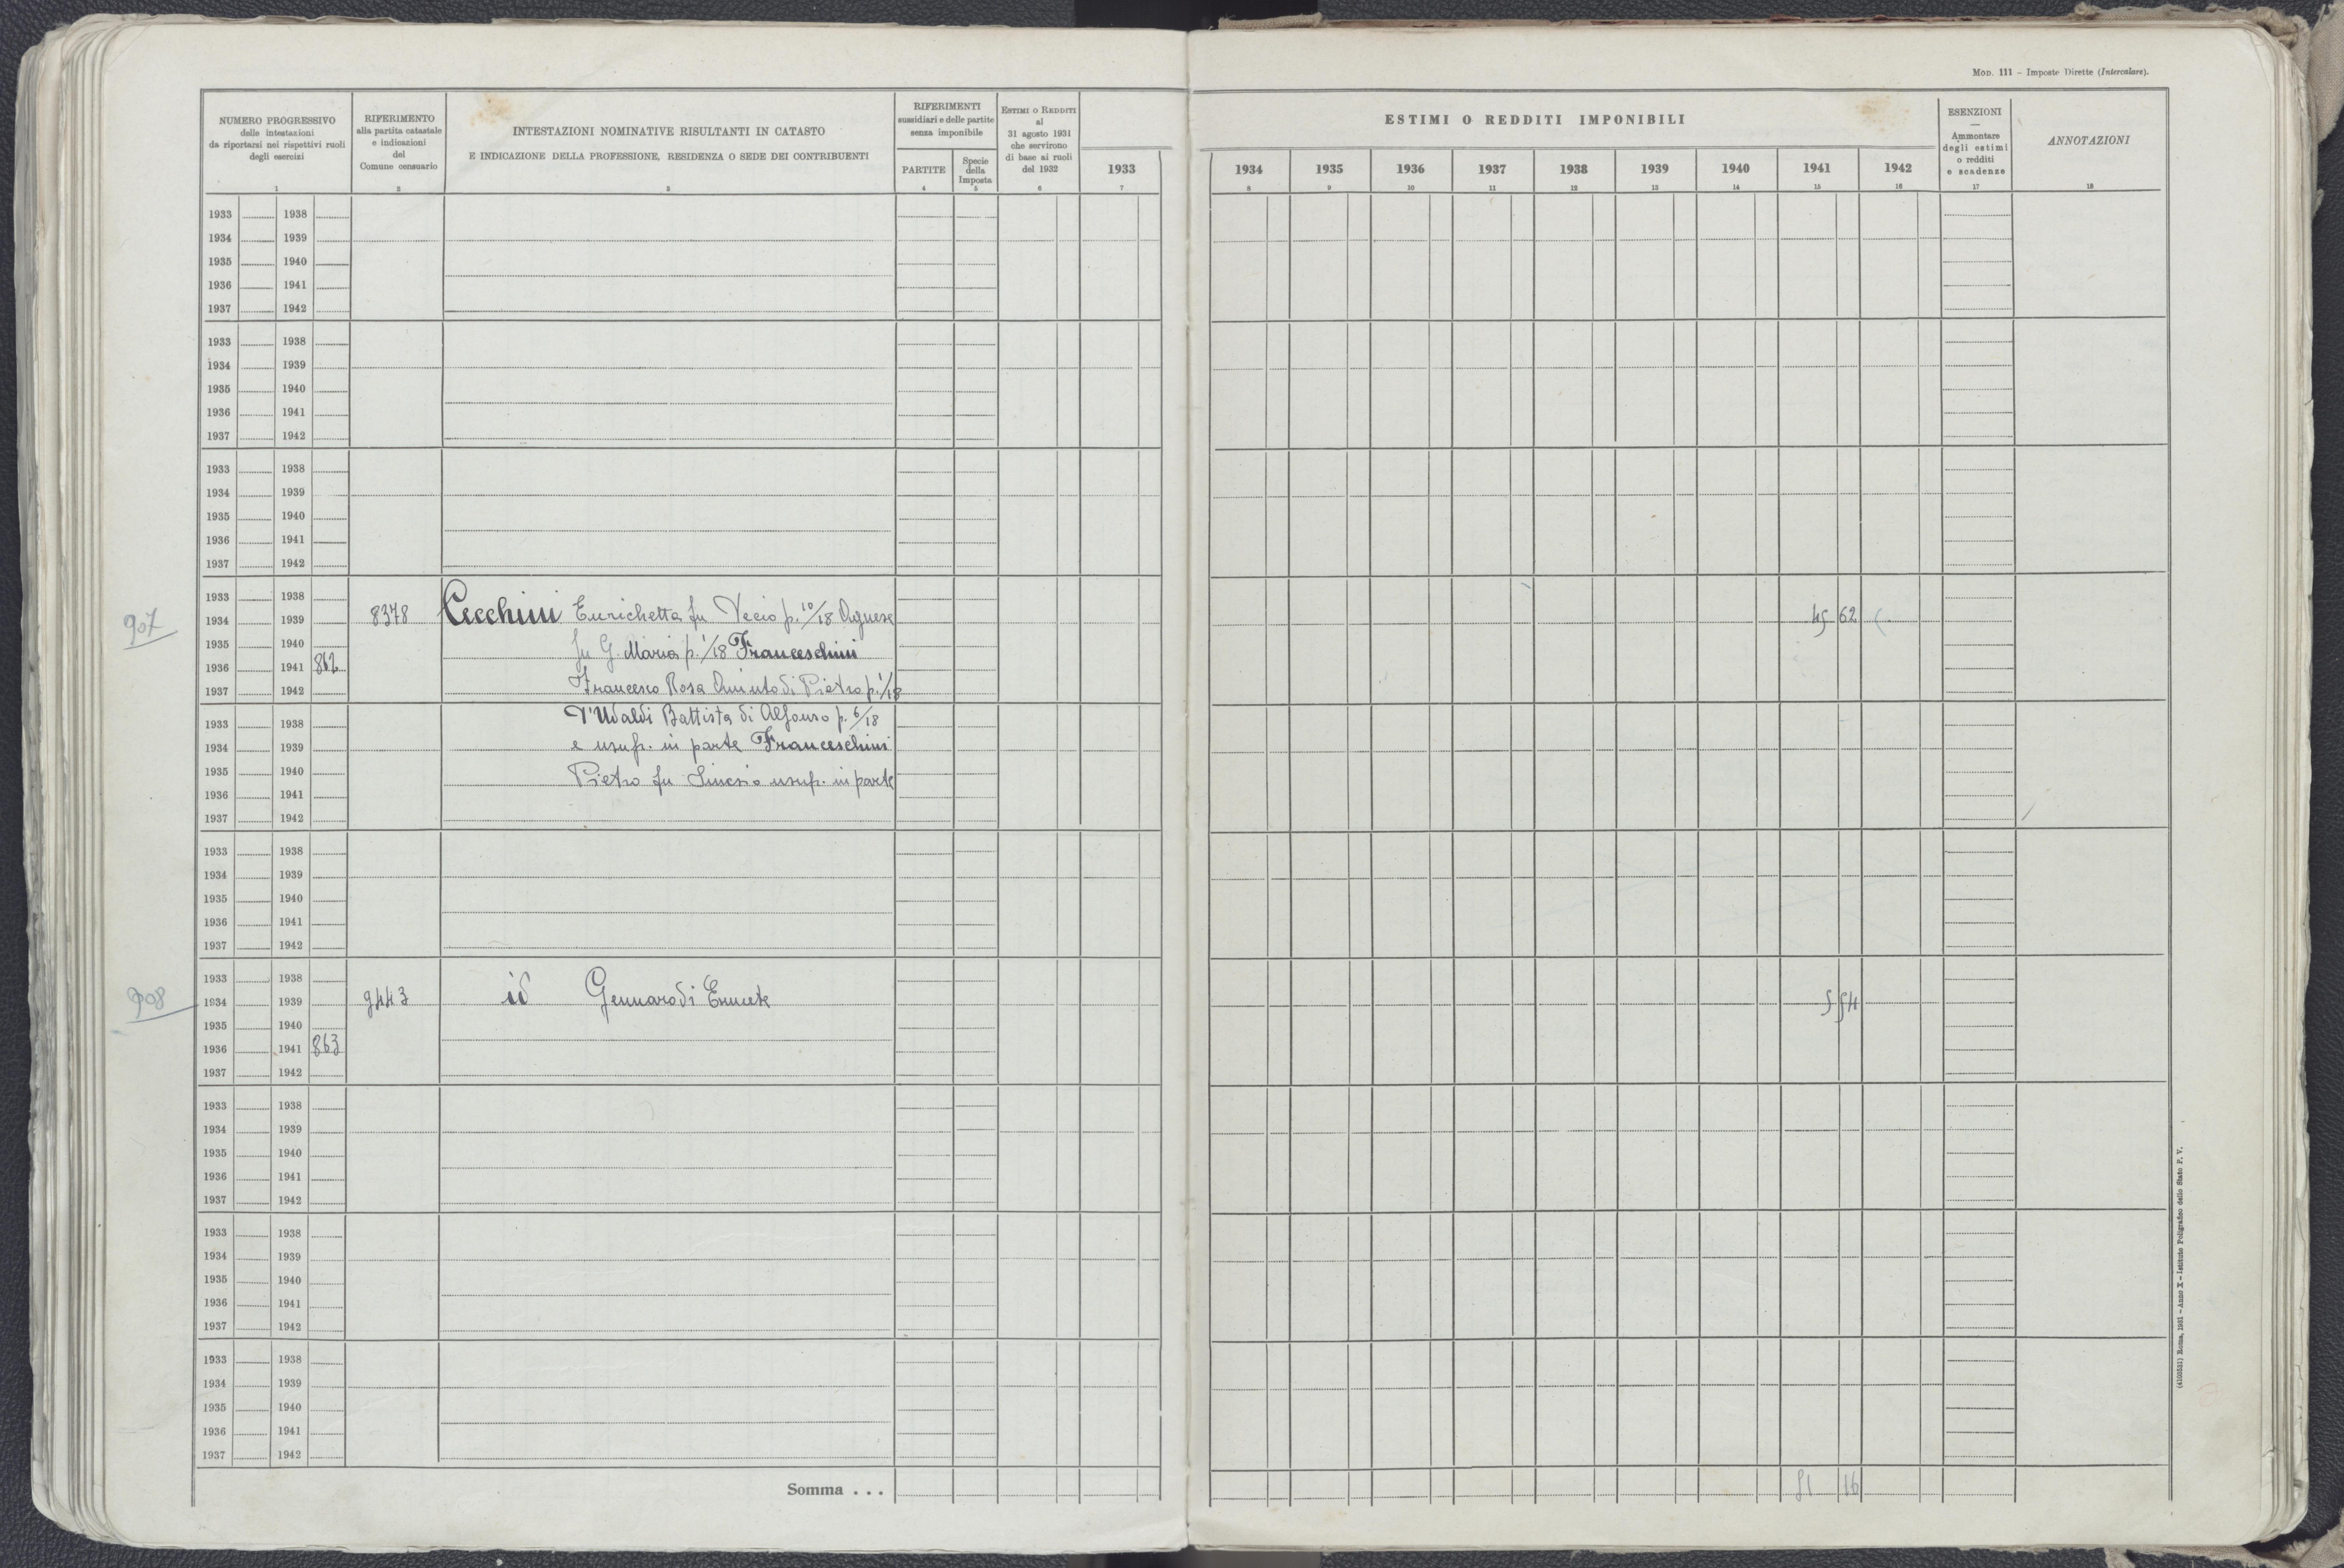 MOD. 111 – Imposte Dirette (Intercalare).
NUMERO PROGRESSIVO
delle intestazioni
da riportarsi nei rispettivi ruoli
degli esercizi
1
RIFERIMENTO
alla partita catastale
e indicazioni
del
Comune censuario
2
INTESTAZIONI NOMINATIVE RISULTANTI IN CATASTO
E INDICAZIONE DELLA PROFESSIONE, RESIDENZA O SEDE DEI CONTRIBUENTI
3
RIFERIMENTI
sussidiari e delle partite
senza imponibile
PARTITE
4
Specie
della
Imposta
5
ESTIMI O REDDITI
al
31 agosto 1931
che servirono
di base ai ruoli
del 1932
6
1933
7
ESTIMI O REDDITI IMPONIBILI
1934 1935 1936 1937 1938 1939 1940 1941 1942
8 9 10 11 12 13 14 15 16
ESENZIONI
—
Ammontare
degli estimi
o redditi
e scadenze
17
ANNOTAZIONI
18
1933 1938
1934 1939
1935 1940
1936 1941
1937 1942
1933 1938
1934 1939
1935 1940
1936 1941
1937 1942
1933 1938
1934 1939
1935 1940
1936 1941
1937 1942
1933 1938
907 1934 1939 8378 Cecchini Enrichetta fu Decio p. 10/18 Agnese 45 62
1935 1940 fu G. Maria p. 1/18 Franceschini
1936 1941 862
1937 1942 Francesco Rosa Quinto di Pietro p. 1/18
1933 1938 D'Ubaldi Battista di Alfonso p. 6/18
1934 1939 e usuf. in parte Franceschini
1935 1940 Pietro fu Sinesio usuf. in parte
1936 1941
1937 1942
1933 1938
1934 1939
1935 1940
1936 1941
1937 1942
1933 1938
908 1934 1939 9443 id Gennaro di Ermete 5 54
1935 1940
1936 1941 863
1937 1942
1933 1938
1934 1939
1935 1940
1936 1941
1937 1942
1933 1938
1934 1939
1935 1940
1936 1941
1937 1942
1933 1938
1934 1939
1935 1940
1936 1941
1937 1942
Somma . . . 51 16
(4103531) Roma, 1931 – Anno X – Istituto Poligrafico dello Stato P. V.